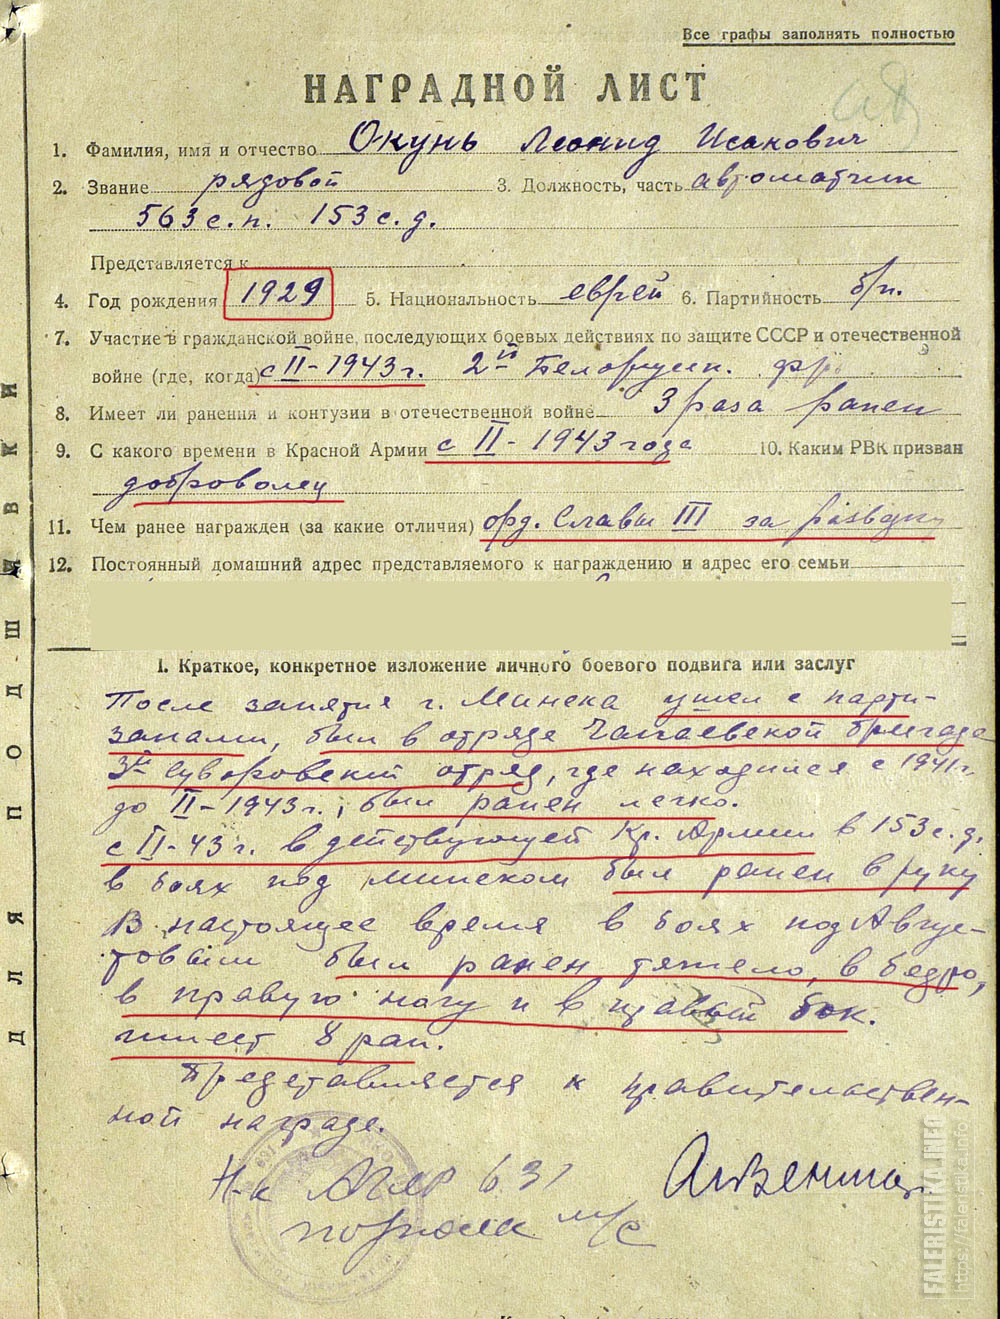 Все графы заполнять полностью
НАГРАДНОЙ ЛИСТ
1. Фамилия, имя и отчество Окунь Леонид Исакович
2. Звание рядовой 3. Должность, часть автоматчик
563 с.п. 153 с.д.
Представляется к
4. Год рождения 1929 5. Национальность еврей 6. Партийность б/п.
7. Участие в гражданской войне, последующих боевых действиях по защите СССР и отечественной
войне (где, когда) с II-1943 г. 2й Белорусск. фр
8. Имеет ли ранения и контузии в отечественной войне 3 раза ранен
9. С какого времени в Красной Армии с II-1943 года 10. Каким РВК призван
доброволец
11. Чем ранее награжден (за какие отличия) орд. Славы III за разведку
12. Постоянный домашний адрес представляемого к награждению и адрес его семьи
I. Краткое, конкретное изложение личного боевого подвига или заслуг
После занятия г. Минска ушел с парти-
занами, был в отряде Чапаевской бригада
3й Суворовский отряд, где находился с 1941 г.
до II-1943 г.; был ранен легко.
с II-43 г. в действующей Кр. Армии в 153 с.д.
в боях под Минском был ранен в руку
В настоящее время в боях под Авгус-
товым был ранен тяжело, в бедро,
в правую ногу и в правый бок.
имеет 8 ран.
Представляется к правительствен-
ной награде.
Н-к 631
м/с
ДЛЯ ПОДШИВКИ
FALERISTIKA.INFO
https://faleristika.info